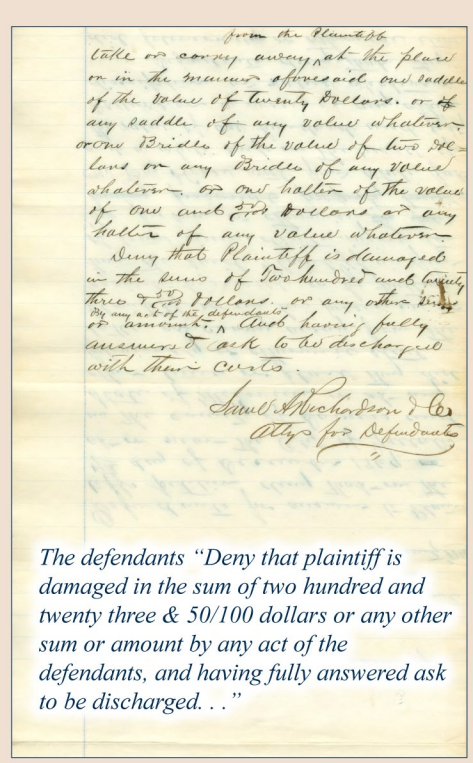 from the Plaintiff
take or carry away, at the place
or in the manner aforesaid one saddle
of the value of twenty Dollars. or of
any saddle of any value whatever.
or one Bridle of the value of two Dol=
lars or any Bridle of any value
whatever. or one halter of the value
of one and 50/100 Dollars or any
halter of any value whatever.
Deny that Plaintiff is damaged
in the sum of Two hundred and twenty
three & 50/100 Dollars. or any other sum
By any act of the defendants
or amount. ^ And having fully
answered ask to be discharged
with their costs.
Saml A Richardson & Co
Attys for Defendants
The defendants “Deny that plaintiff is
damaged in the sum of two hundred and
twenty three & 50/100 dollars or any other
sum or amount by any act of the
defendants, and having fully answered ask
to be discharged. . .”